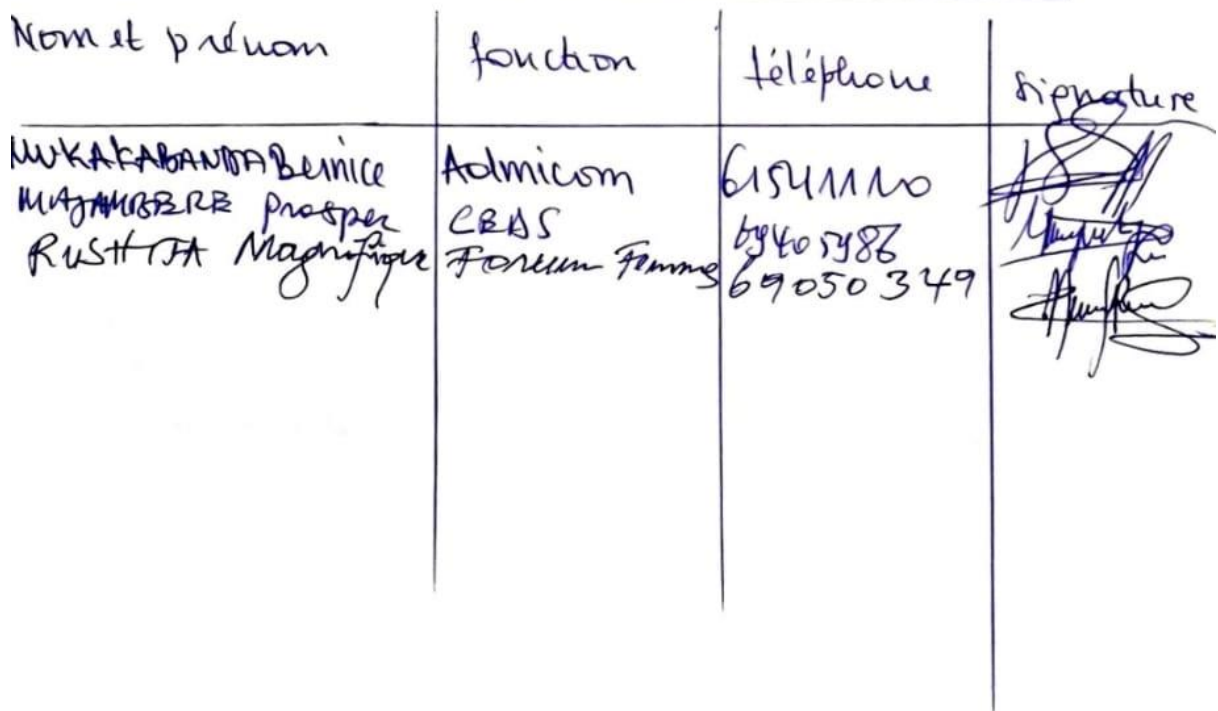 Nom et prénom fonction téléphone signature
MUKAKABANDA Bernice Admicom 61541110
MAJAMBERE prosper CBAS 69405986
RUSHITJA Magnifique Forum Femmes 69050349